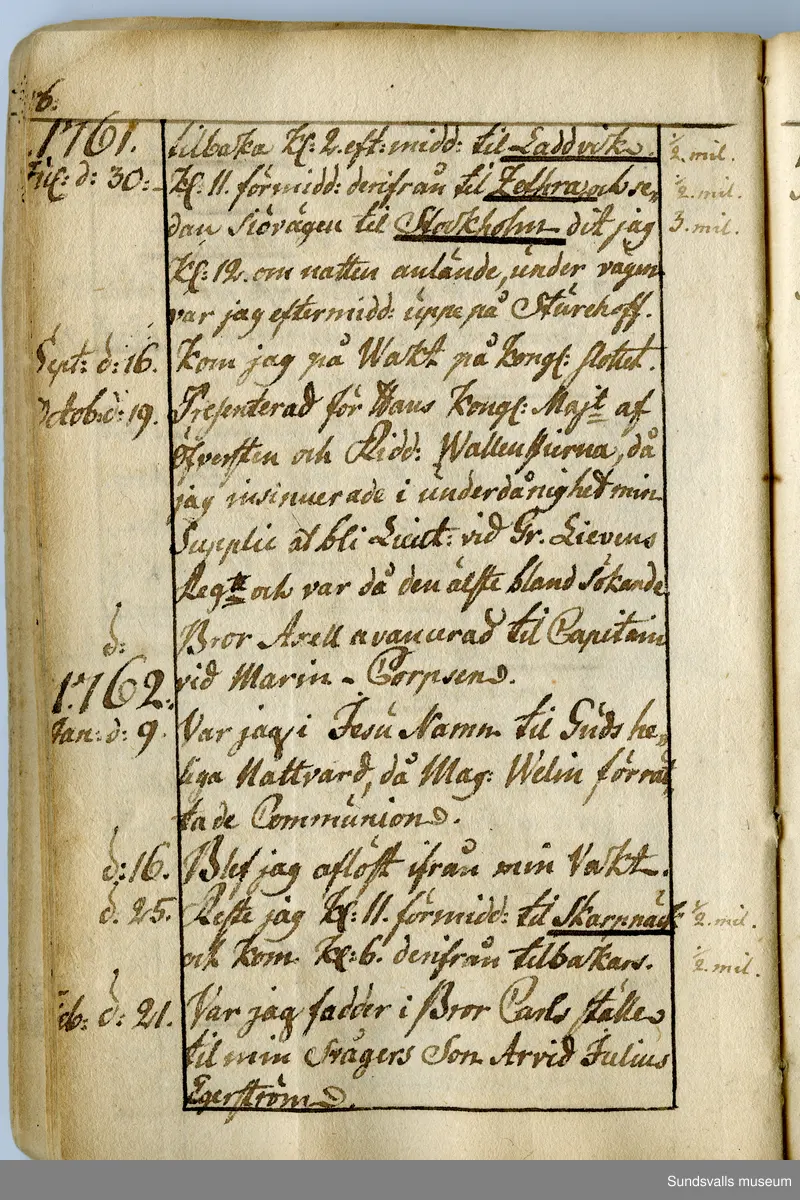 6.
1761. tilbaka Kl: 2. eft:midd: til Laddvik. ½ mil.
Jul: d: 30: Kl: 11. förmidd: derifrån til Zethra och se- ½. mil.
dan siövägen til Stockholm dit jag 3. mil.
Kl: 12. om natten anlände, under vägen
var jag eftermidd: uppe på Sturehoff.
Sept: d: 16. Kom jag på Wakt på Kongl: slottet.
Octob: d: 19. Presenterad för Hans Kongl: Majt af
öfversten och Ridd: Wallenstierna, då
jag insinuerade i underdånighet min
Supplic at bli Lieut: vid Gr. Lievens
Regte och var då den älste bland sökande.
d: Bror Axell avancerad til Capitain
1762. vid Marin-Corpsen.
Jan: d: 9. Var jag i Jesu Namn til Guds he-
liga Nattvard, då Mag: Welin förrät-
tade Communion.
d: 16. Blef jag aflöst ifrån min Vakt.
d. 25. Reste jag Kl: 11. förmidd: til Skarpnäck ½. mil.
och kom Kl: 6. derifrån tilbakars. ½. mil.
Feb: d: 21. Var jag fadder i Bror Carls ställe
til min Svågers Son Arvid Julius
Egerström.
Sundsvalls museum